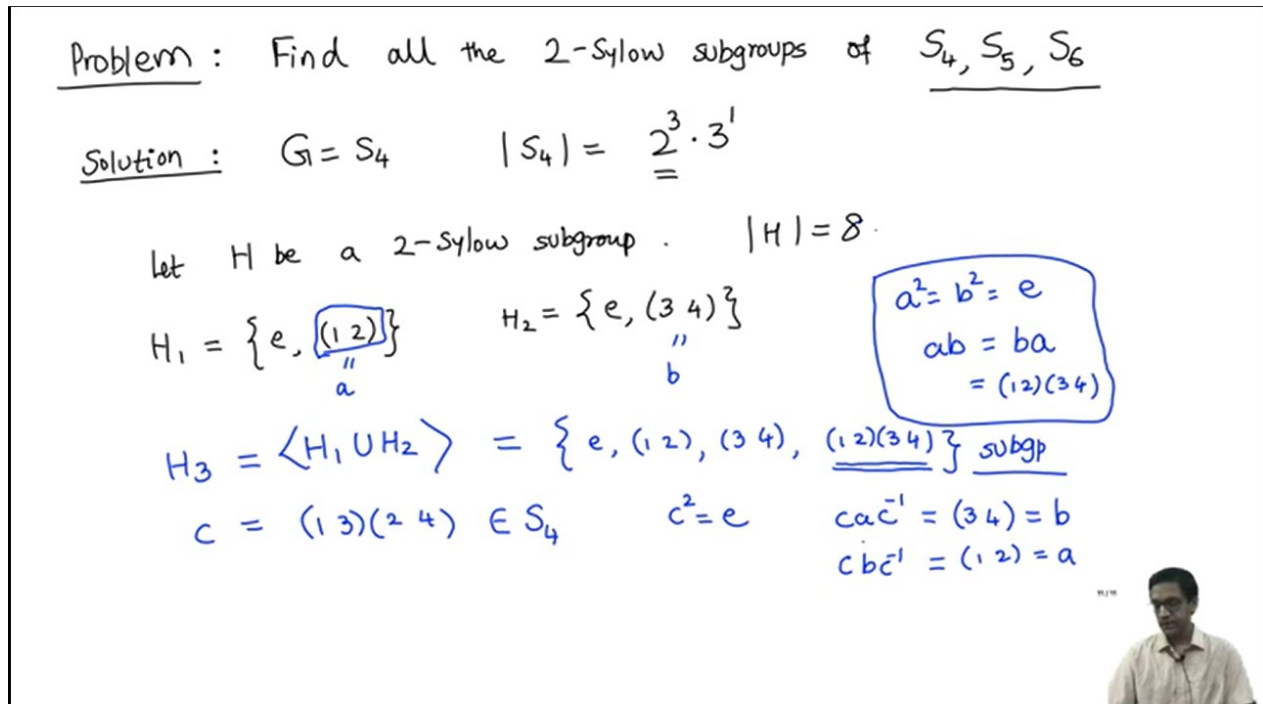 Problem : Find all the 2-Sylow subgroups of S₄, S₅, S₆
Solution : G = S₄ |S₄| = 2³ · 3¹
Let H be a 2-Sylow subgroup . |H| = 8.
H₁ = {e, (1 2)} H₂ = {e, (3 4)}
" "
a b
a² = b² = e
ab = ba
= (1 2)(3 4)
H₃ = ⟨H₁ ∪ H₂⟩ = {e, (1 2), (3 4), (1 2)(3 4)} subgp
c = (1 3)(2 4) ∈ S₄ c² = e cac⁻¹ = (3 4) = b
cbc⁻¹ = (1 2) = a